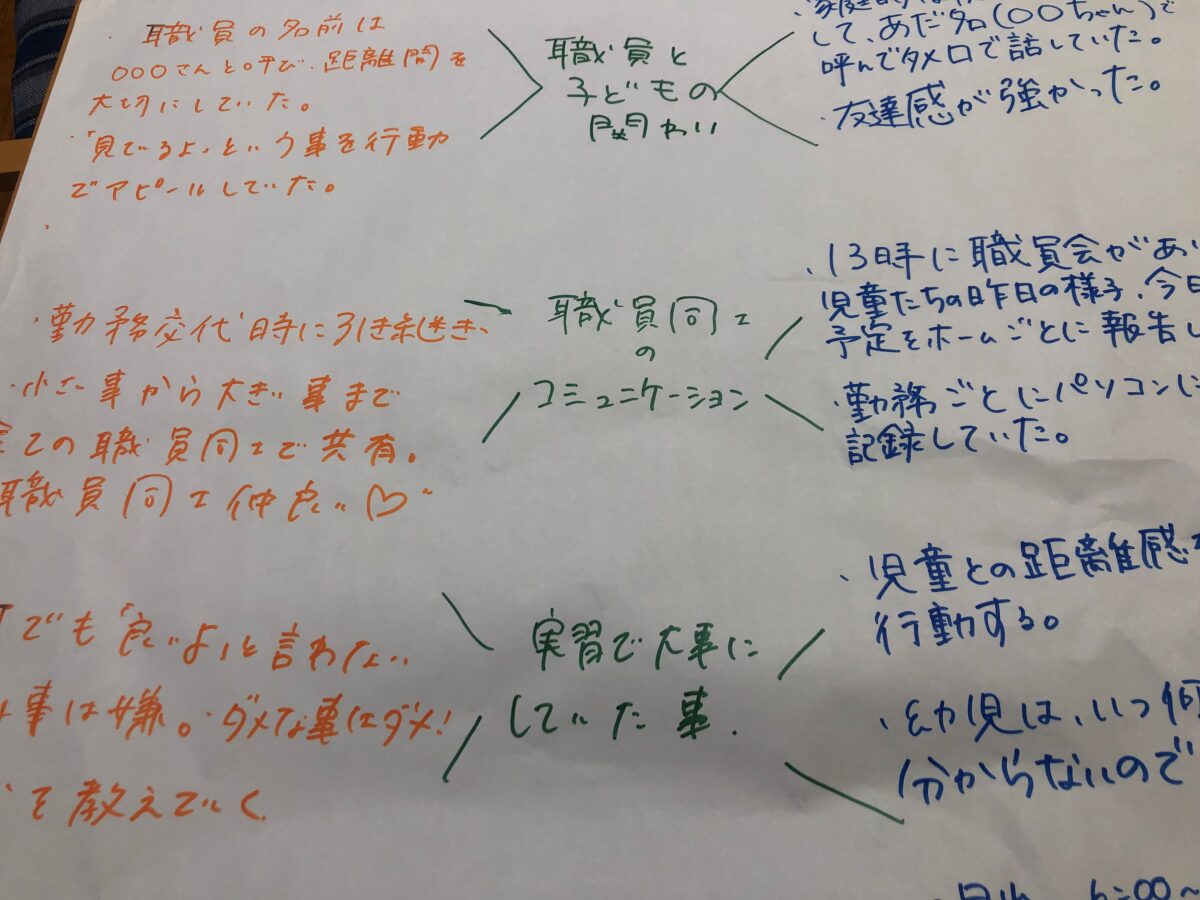 ・職員の名前は
〇〇〇さんと呼び、距離間を
大切にしていた。
・「見ているよ」という事を行動
でアピールしていた。
・
職員と
子どもの
関わり
して、あだ名(〇〇ちゃん)で
呼んでタメ口で話していた。
・友達感が強かった。
・勤務交代時に引き継ぎ、
・小さい事から大きい事まで
全ての職員同士で共有。
職員同士仲良い♡
職員同士
の
コミュニケーション
・13時に職員会があり
児童たちの昨日の様子、今日
予定をホームごとに報告し
・勤務ごとにパソコンに
記録していた。
でも「良いよ」と言わない
事は嫌。・ダメな事はダメ!
を教えていく
実習で大事に
していた事.
・児童との距離感
行動する。
・幼児は、いつ何
分からないので
6:00~